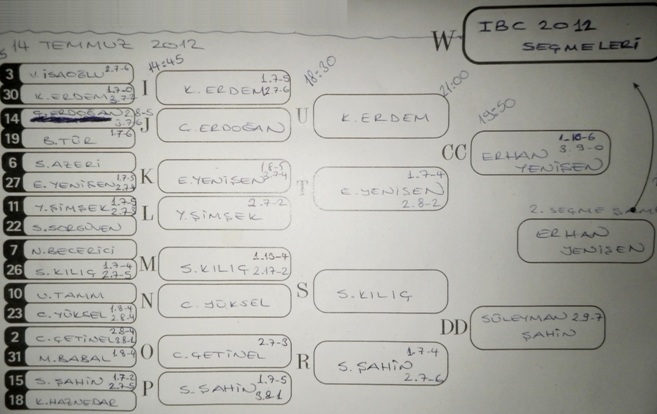 14 TEMMUZ 2012
W
IBC 2012
SEÇMELERİ
14:45
18:30
21:00
19:50
3 V. İSAOĞLU 2.7-6
30 K. ERDEM
14 G. ERDOĞAN
19 B. TÜR 1.7-6
6 S. AZERİ
27 E. YENİŞEN 1.7-5
11 Y. ŞİMŞEK 1.7-5
22 S. SORGUVEN
7 N. BECERİCİ
26 S. KILIÇ 1.7-4
2.7-5
10 U. TAMM
23 C. YÜKSEL 1.8-4
2.8-4
2 C. ÇETİNEL 2.8-4
31 M. BABAL 1.8-4
15 S. ŞAHİN 1.7-2
2.7-5
18 K. HAZNEDAR
I
K. ERDEM 1.7-5
2.7-6
J
G. ERDOĞAN
K
E. YENİŞEN 1.8-5
L
Y. ŞİMŞEK 2.7-2
M
S. KILIÇ 1.19-4
2.17-2
N
C. YÜKSEL
O
C. ÇETİNEL 2.7-3
P
S. ŞAHİN 1.7-5
3.8-1
U
K. ERDEM
T
E. YENİŞEN 1.7-4
2.8-2
S
S. KILIÇ
R
S. ŞAHİN 1.7-4
2.7-6
CC
ERHAN 1.10-6
3 9-0
YENİŞEN
2. SEÇME ŞAM
ERHAN
YENİŞEN
DD
SÜLEYMAN 2.9-7
ŞAHİN